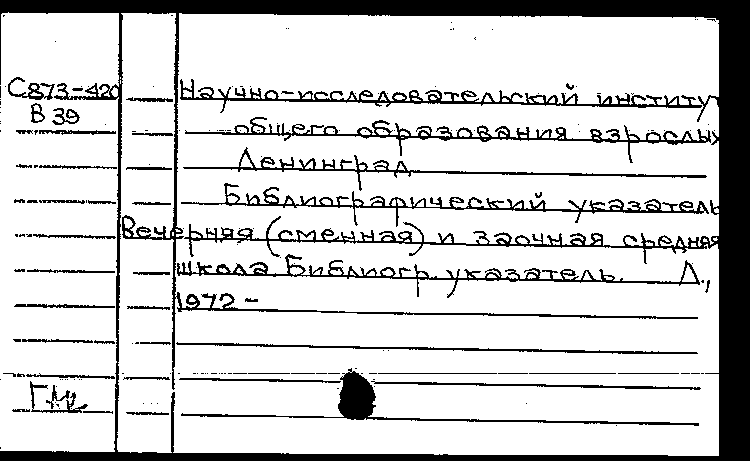 С873-420
В 39
Научно-исследовательский институт
общего образования взрослых
Ленинград.
Библиографический указатель
Вечерняя (сменная) и заочная средняя
школа Библиогр. указатель. Л.,
1972 -